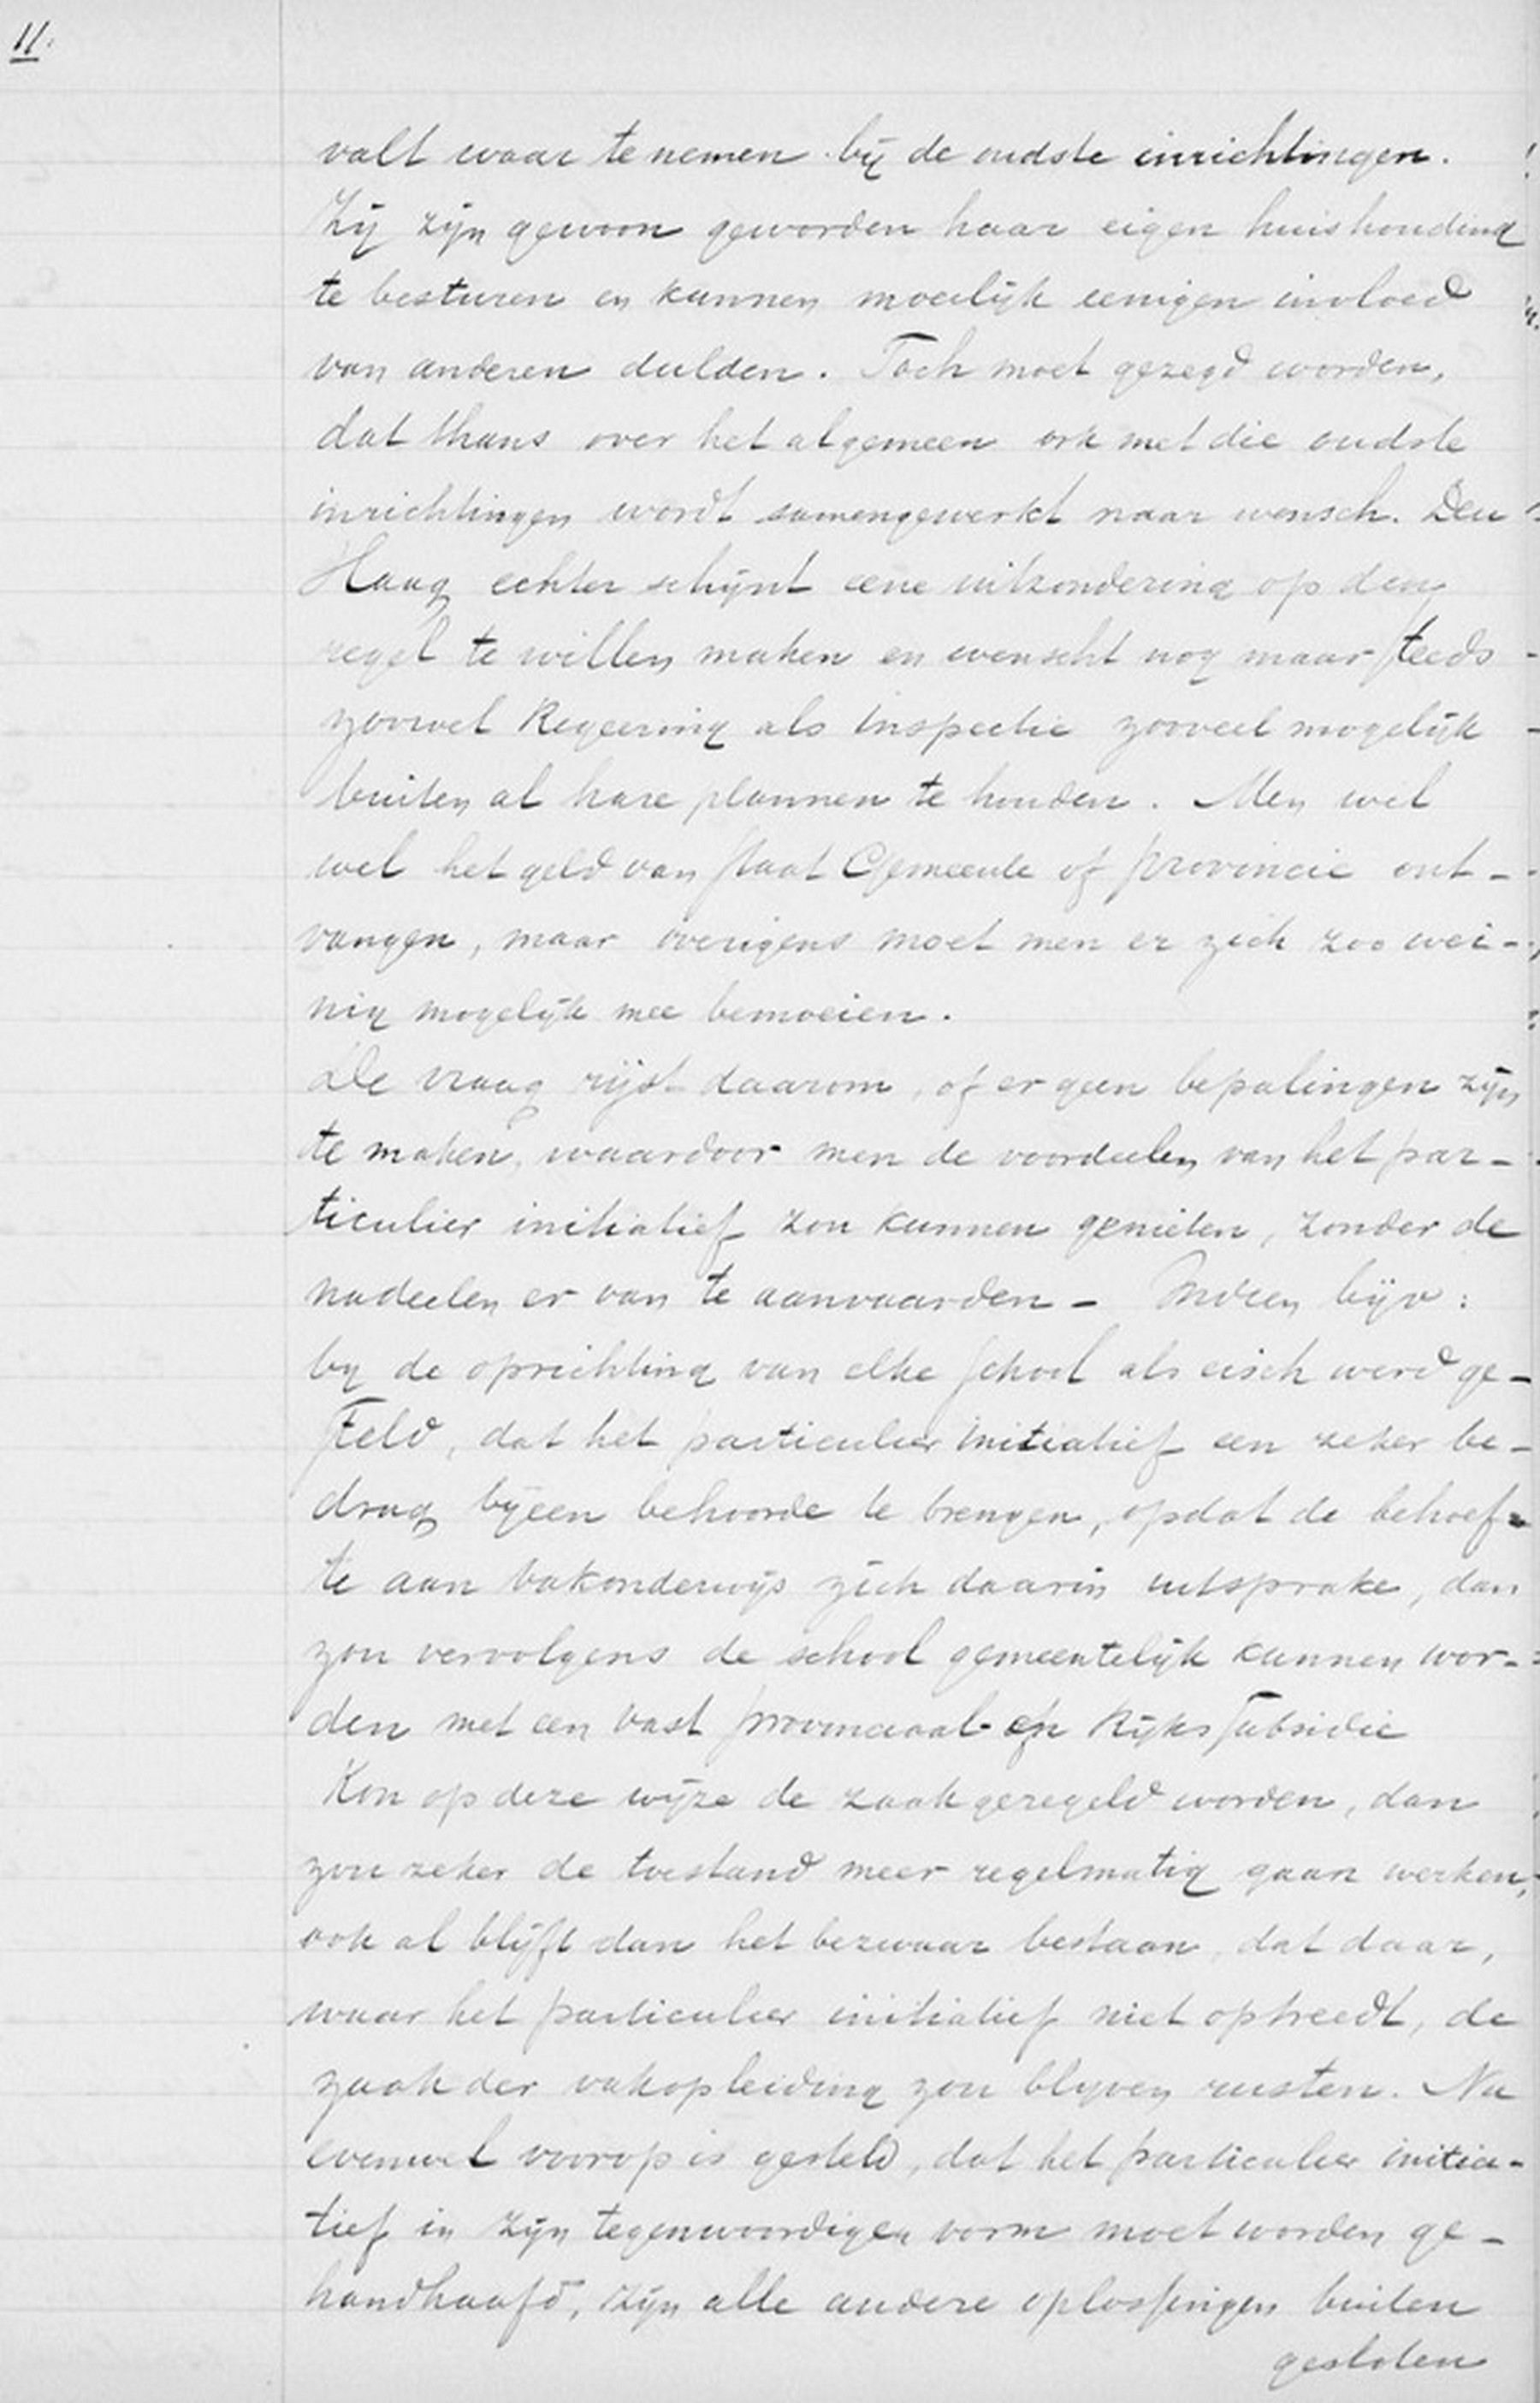 11.
valt waar te nemen bij de oudste inrichtingen.
Zij zijn gewoon geworden haar eigen huishouding
te besturen en kunnen moeilijk eenigen invloed
van anderen dulden. Toch moet gezegd worden,
dat thans over het algemeen ook met die oudste
inrichtingen wordt samengewerkt naar wensch. Den
Haag echter schijnt eene uitzondering op den
regel te willen maken en wenscht nog maar steeds
zoowel Regeering als Inspectie zooveel mogelijk
buiten al hare plannen te houden. Men wil
wel het geld van staat Gemeente of provincie ont-
vangen, maar overigens moet men er zich zoo wei-
nig mogelijk mee bemoeien.
De vraag rijst daarom, of er geen bepalingen zijn
te maken, waardoor men de voordeelen van het par-
ticulier initiatief zou kunnen genieten, zonder de
nadeelen er van te aanvaarden - Indien bijv:
bij de oprichting van elke school als eisch werd ge-
steld, dat het particulier initiatief een zeker be-
drag bijeen behoorde te brengen, opdat de behoef-
te aan vakonderwijs zich daarin uitsprake, dan
zou vervolgens de school gemeentelijk kunnen wor-
den met een vast provinciaal- en Rijkssubsidie
Kon op deze wijze de zaak geregeld worden, dan
zou zeker de toestand meer regelmatig gaan werken,
ook al blijft dan het bezwaar bestaan, dat daar,
waar het particulier initiatief niet optreedt, de
zaak der vakopleiding zou blijven rusten. Nu
evenwel voorop is gesteld, dat het particulier initia-
tief in zijn tegenwoordigen vorm moet worden ge-
handhaafd, zijn alle andere oplossingen buiten
gesloten